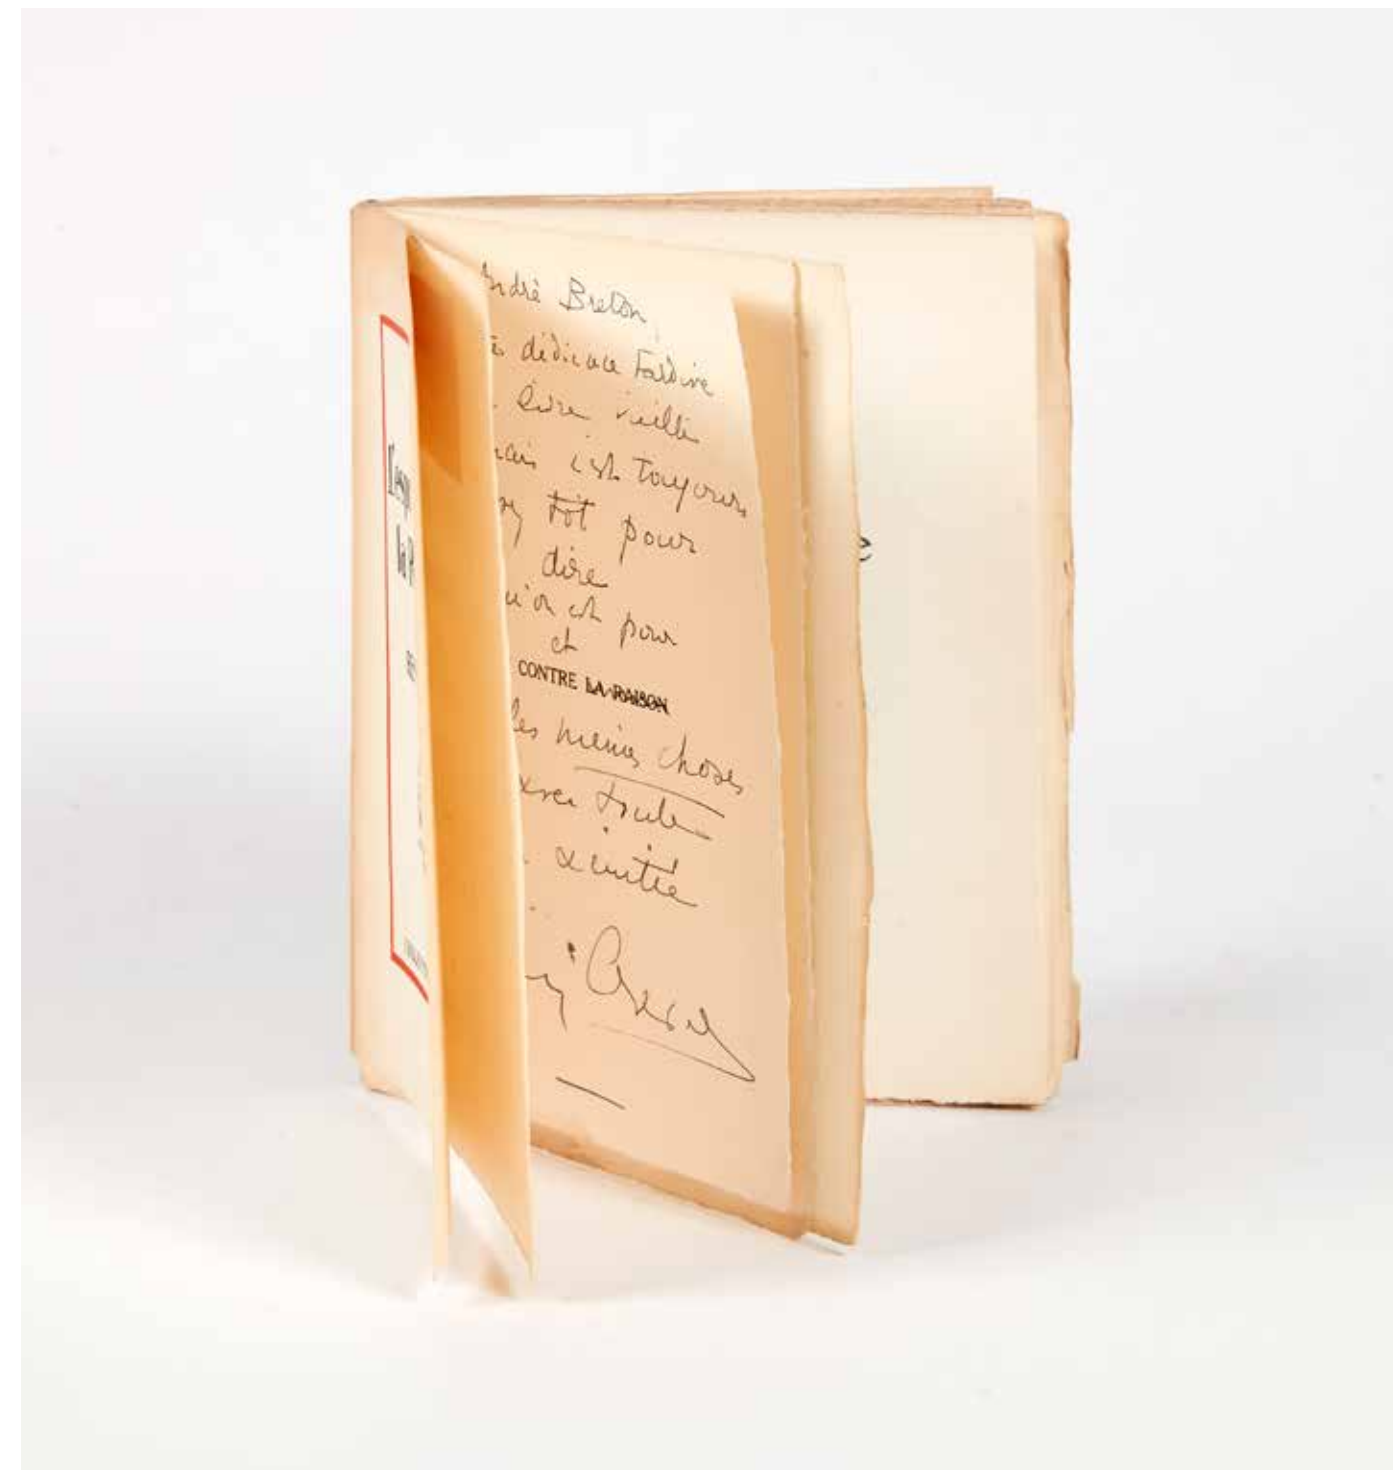 L'esp
la R
André Breton,
dédicace tardive
livre vieilli
mais est toujours
tôt pour
dire
qu'on est pour
et
CONTRE LA RAISON
les mêmes choses
avec toute
amitié
Crevel
e